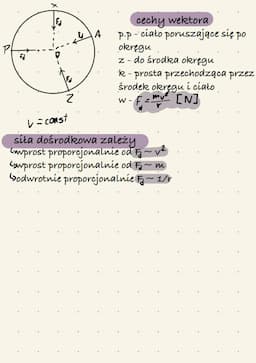 X
Fd
P
Fd
A
Z
V = const
cechy wektora
p.p - ciało poruszające się po
okręgu
z - do środka okręgu
k - prosta przechodząca przez
środek okręgu i ciało
w - Fd = mv²/r [N]
siła dośrodkowa zależy
wprost proporcjonalnie od Fd ~ v²
wprost proporcjonalnie od Fd ~ m
odwrotnie proporcjonalnie Fd ~ 1/r